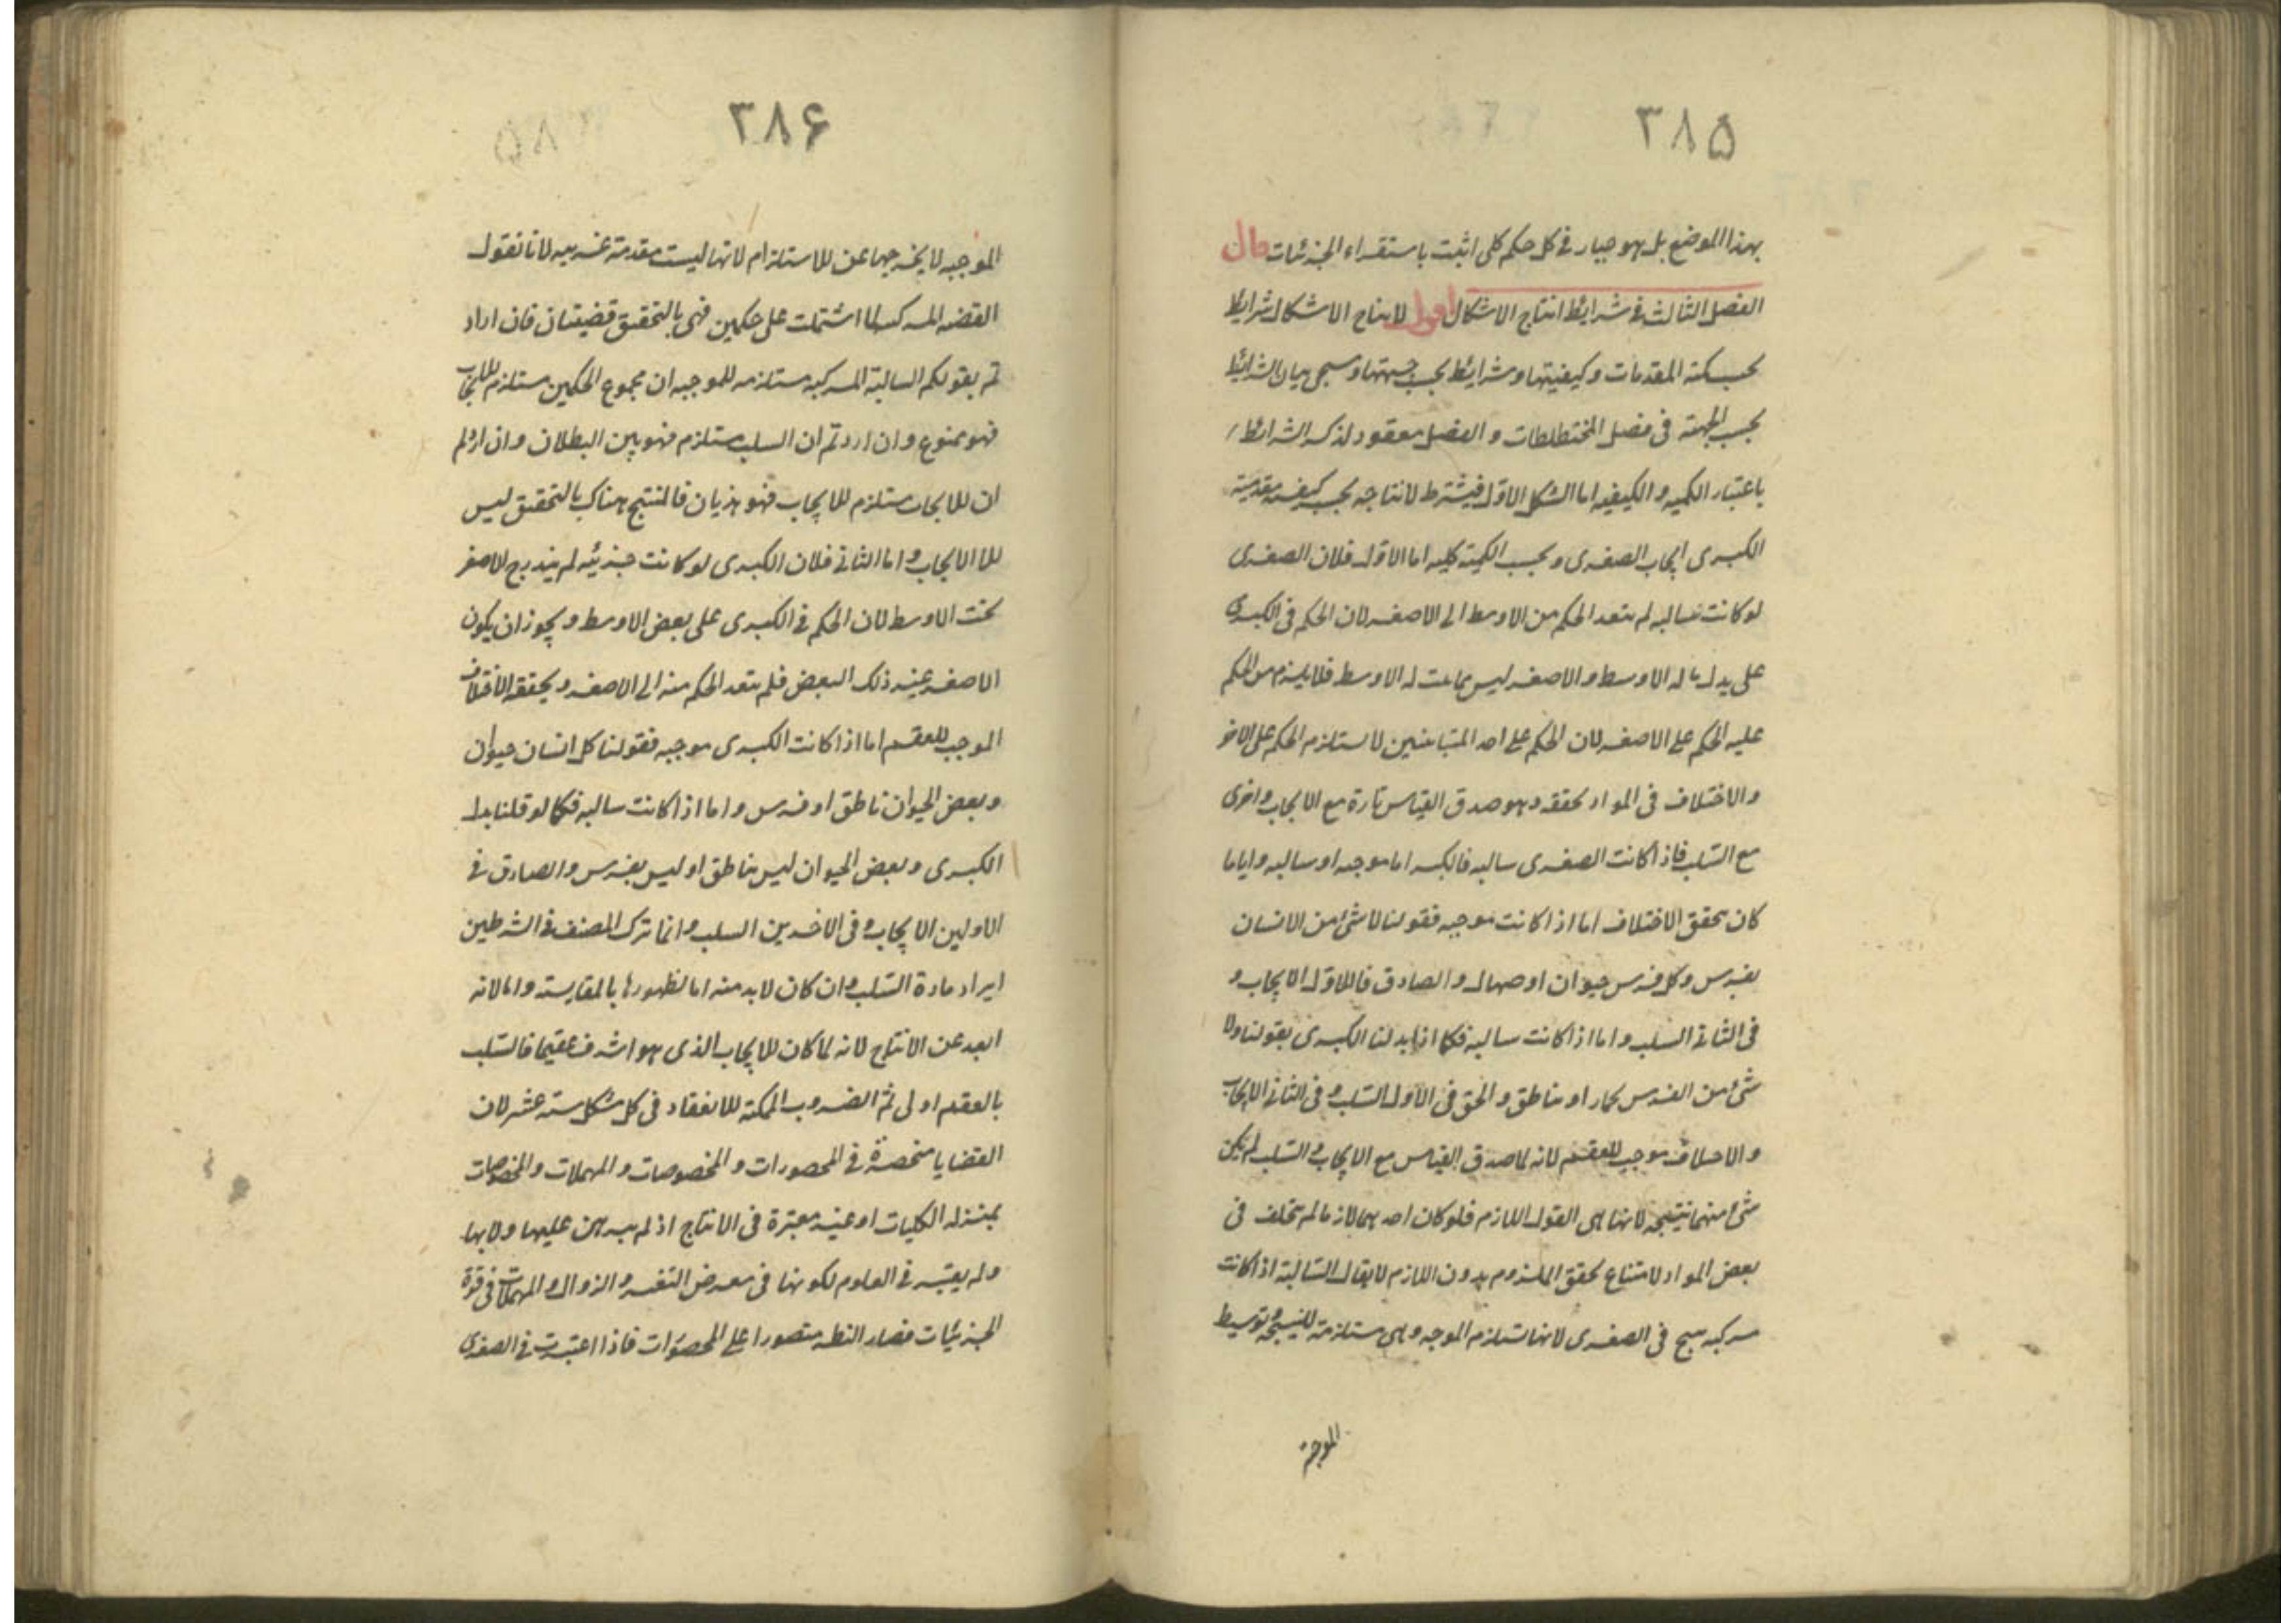 ٣٨۵
بهذا الموضع بل هو جار في كل حكم كلى اثبت باستقراء الجزئيات قال
الفصل الثالث في شرايط انتاج الاشكال اقول لانتاج الاشكال شرايط
بحسب كمية المقدمات وكيفيتها وشرايط بحسب جهتها وسيجى بيان الشرائط
بحسب الجهة فى فصل المختلطات و الفصل معقود لذكر الشرائط
باعتبار الكميه و الكيفيه اما الشكل الاول فيشترط لانتاجه بحسب كيفية مقدمتيه
الكبرى ايجاب الصغرى وبحسب الكمية كليه اما الاول فلان الصغرى
لو كانت سالبه لم يتعد الحكم من الاوسط الى الاصغر لان الحكم فى الكبرى
على ما له الاوسط والاصغر ليس مما ثبت له الاوسط فلا يلزم من الحكم
عليه الحكم على الاصغر لان الحكم على احد المتباينين لا يستلزم الحكم على الاخر
والاختلاف فى المواد يحققه وهو صدق القياس تارة مع الايجاب واخرى
مع السلب فاذا كانت الصغرى سالبه فالكبر اما موجبه او سالبه واياما
كان يتحقق الاختلاف اما اذا كانت موجبه فقولنا لا شئ من الانسان
بفرس وكل فرس حيوان او صهال والصادق فى الاول الايجاب و
فى الثانى السلب واما اذا كانت سالبه فكما اذا بدلنا الكبرى بقولنا ولا
شئ من الفرس بحمار او بناطق والحق فى الاول السلب وفى الثانى الايجاب
والاختلاف موجب للعقم لانه لما صدق القياس مع الايجاب والسلب لم يكن
شئ منهما نتيجه لانها هى القول اللازم فلو كان احدهما لازما لم يتخلف فى
بعض المواد لامتناع تحقق الملزوم بدون اللازم لا يقال السالبة اذا كانت
مركبه ينتج فى الصغرى لانها تستلزم الموجبه وهى مستلزمة للنتيجة وتوسيط
الموجبه
٣٨۶
الموجبه لا يخرجها عن الاستلزام لانها ليست مقدمة غريبه لانا نقول
القضيه المركبه لما اشتملت على حكمين فهى بالتحقيق قضيتان فان اراد
تم بقولكم السالبة المركبة مستلزمه للموجبه ان مجموع الحكمين مستلزم للايجاب
فهو ممنوع وان اردتم ان السلب مستلزم فهو بين البطلان وان اردتم
ان الايجاب مستلزم للايجاب فهو هذيان فالمنتج هناك بالتحقيق ليس
الا الايجاب واما الثانى فلان الكبرى لو كانت جزئيه لم يندرج الاصغر
تحت الاوسط لان الحكم فى الكبرى على بعض الاوسط ويجوز ان يكون
الاصغر غير ذلك البعض فلم يتعد الحكم منه الى الاصغر ويحققه الاختلاف
الموجب للعقم اما اذا كانت الكبرى موجبه فقولنا كل انسان حيوان
وبعض الحيوان ناطق او فرس واما اذا كانت سالبه فكما لو قلنا بدل
الكبرى وبعض الحيوان ليس بناطق او ليس بفرس والصادق فى
الاولين الايجاب وفى الاخرين السلب وانما ترك المصنف فى الشرطين
ايراد مادة السلب وان كان لا بد منه اما لظهورها بالمقايسة واما لانه
ابعد عن الانتاج لانه لما كان الايجاب الذى هو اشرف عقيما فالسلب
بالعقم اولى ثم الضروب الممكنة الانعقاد فى كل شكل ستة عشر لان
القضايا منحصرة فى المحصورات والمخصوصات والمهملات والمخصوصات
بمنزله الكليات او غير معتبرة فى الانتاج اذ لم يبرهن عليها ولا بها
ولم يعتبر فى العلوم لكونها فى معرض التغير والزوال والمهملات فى قوة
الجزئيات فصار النظر مقصورا على المحصورات فاذا اعتبرت فى الصغرى